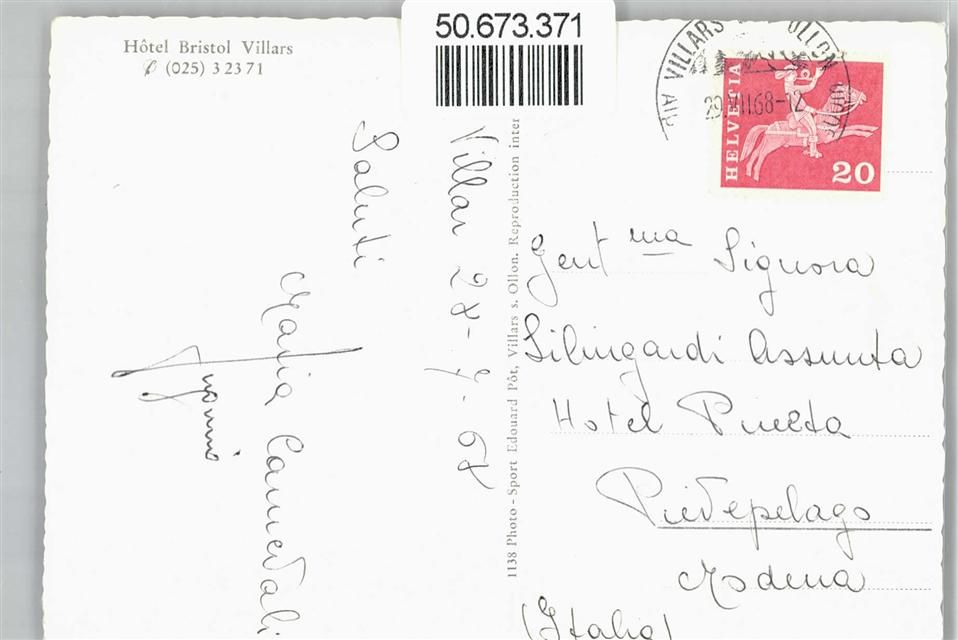 50.673.371
Hôtel Bristol Villars
(025) 3 23 71
VILLARS OLLON
29.VII.68-12
HELVETIA
20
Villar 28-7-68
Saluti
Maria
1138 Photo-Sport Edouard Pôt, Villars s. Ollon. Reproduction inter
Gent ma Signora
Silingardi Assunta
Hotel Pineta
Pievepelago
Modena
(Italia)